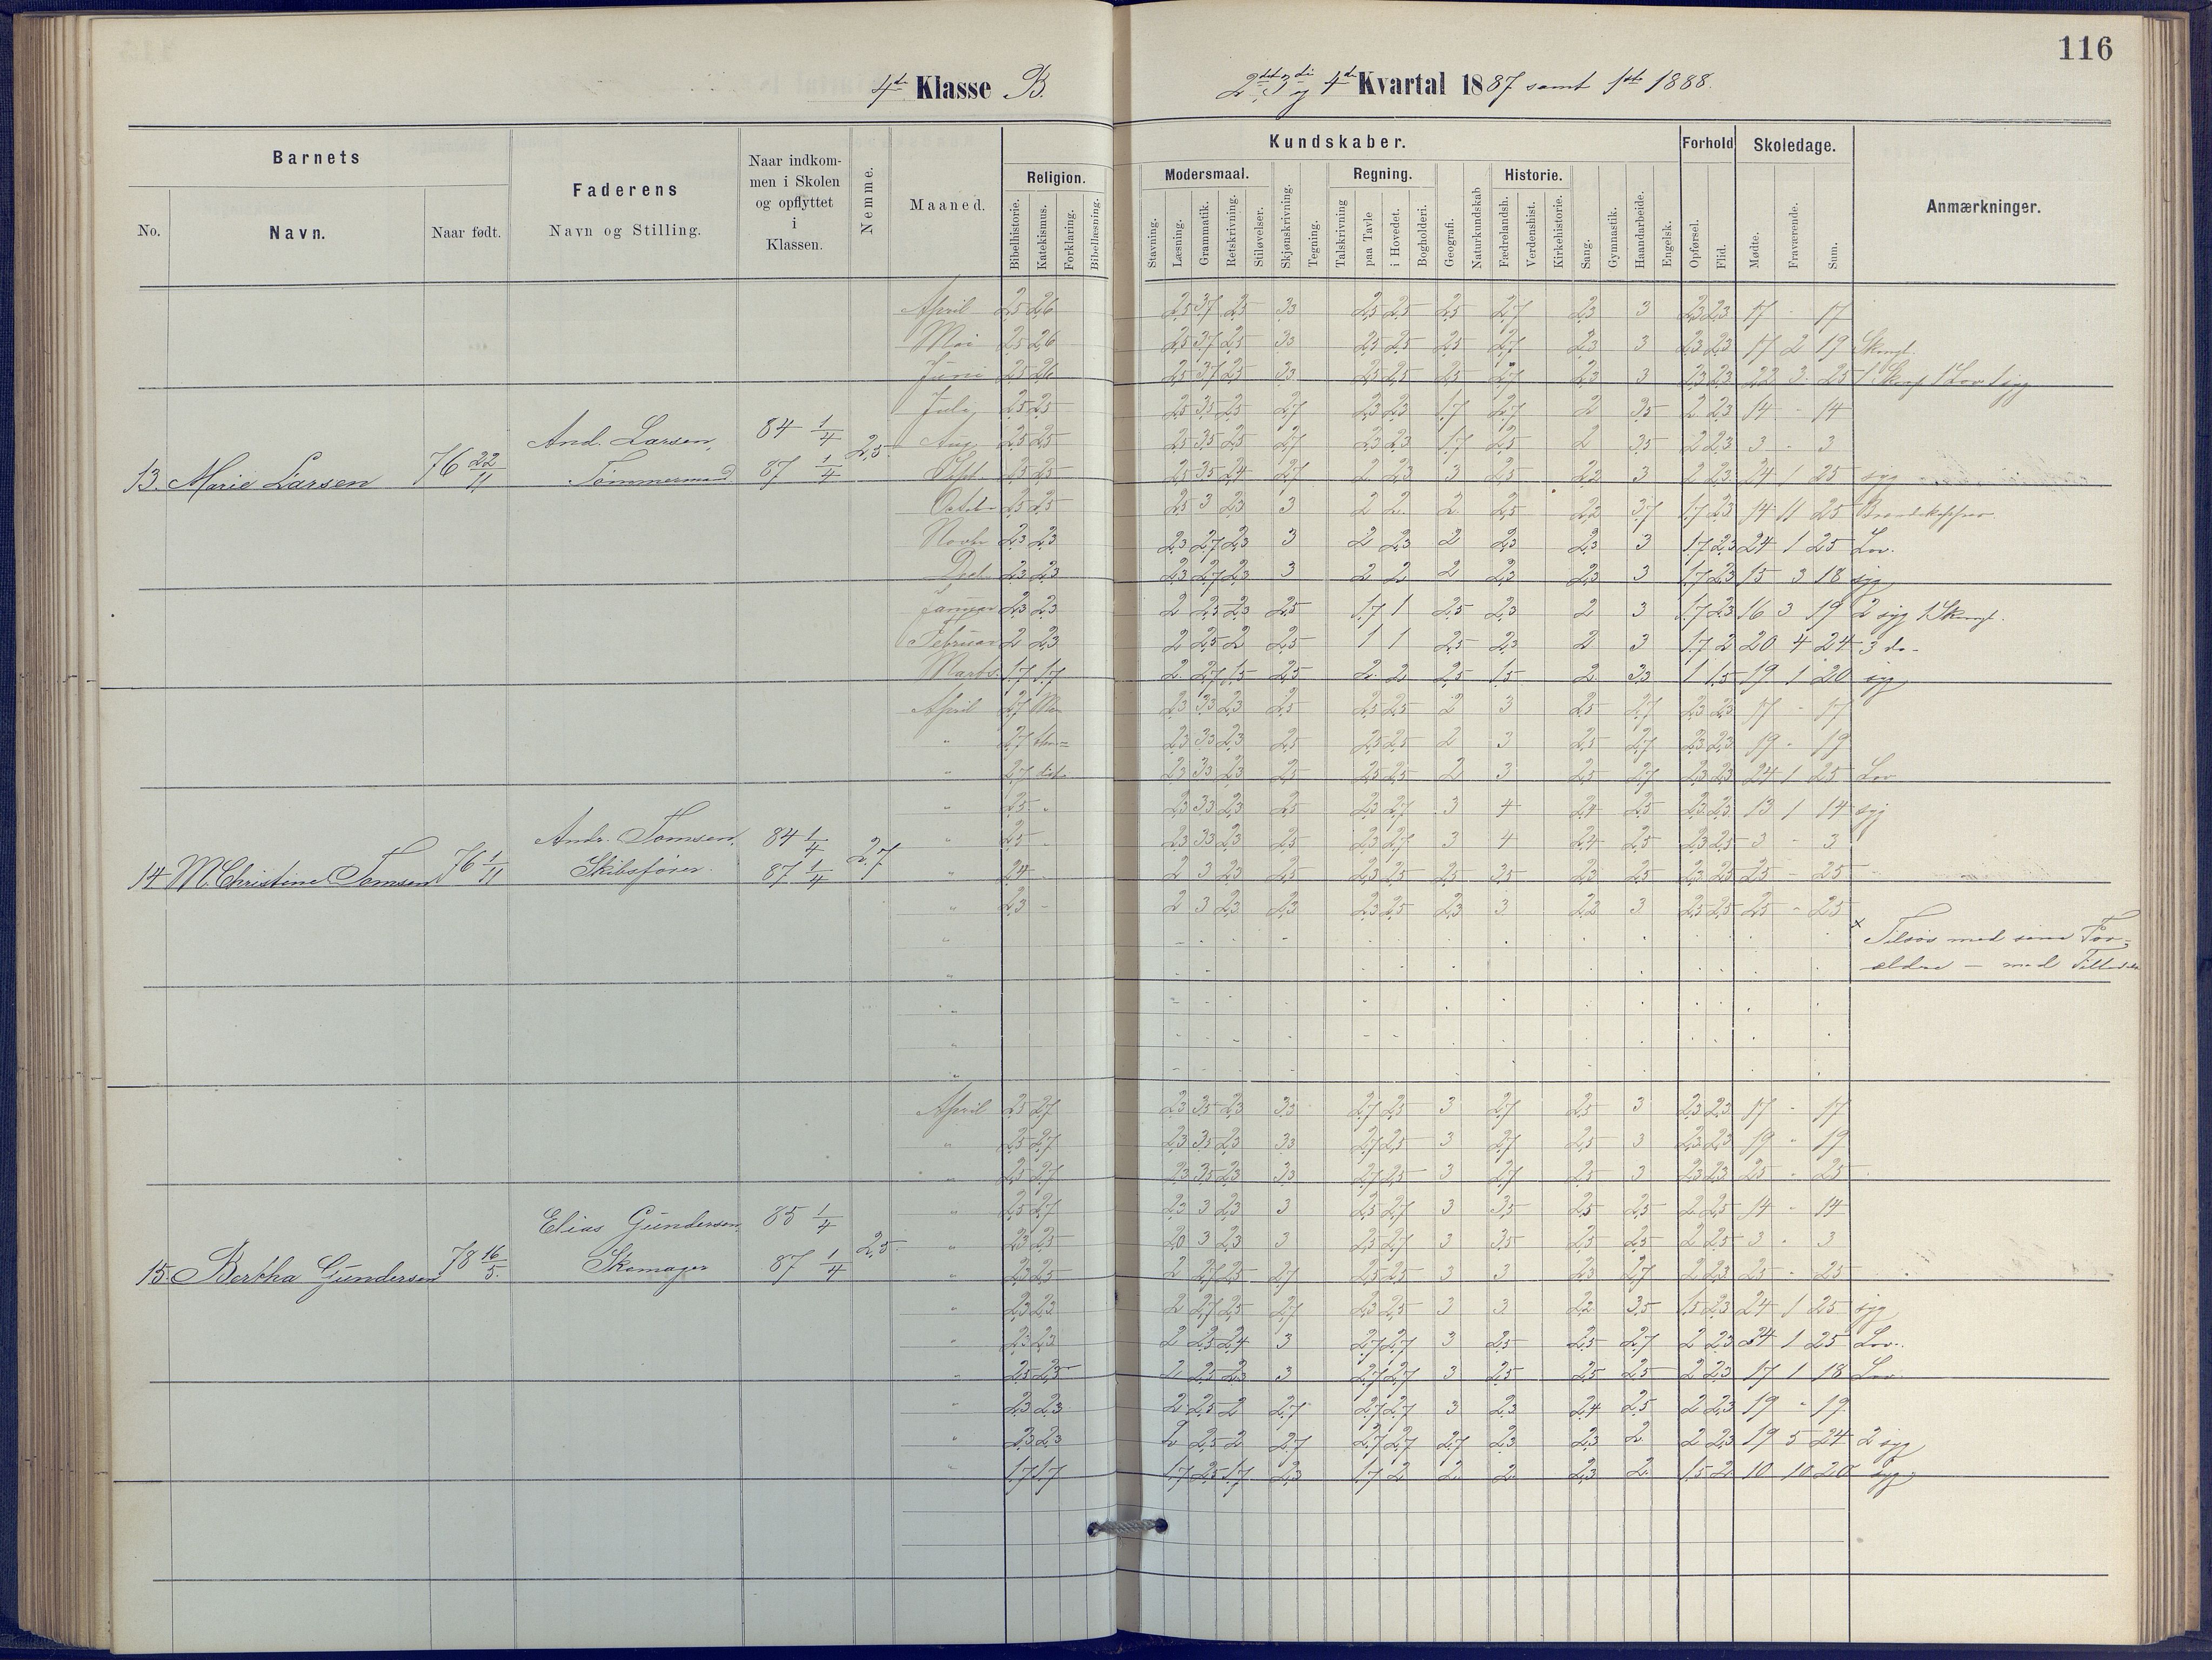 116
4de Klasse B.
2det 3die og 4de Kvartal 1887 samt 1ste 1888.
Barnets
No.
Navn.
Naar født.
Faderens
Navn og Stilling.
Naar indkom-
men i Skolen
og opflyttet
i
Klassen.
Nemme.
Maaned.
Kundskaber.
Religion.
Bibelhistorie.
Katekismus.
Forklaring.
Bibellæsning.
Modersmaal.
Stavning.
Læsning.
Grammatik.
Retskrivning.
Stiløvelser.
Skjønskrivning.
Tegning.
Regning.
Talskrivning
paa Tavle
i Hovedet.
Bogholderi.
Geografi.
Naturkundskab
Historie.
Fædrelandsh.
Verdenshist.
Kirkehistorie.
Sang.
Gymnastik.
Haandarbeide.
Engelsk.
Forhold
Opførsel.
Flid.
Skoledage.
Mødte.
Fraværende.
Sum.
Anmærkninger.
13. Marie Larsen 76 22/11 And. Larsen, Tømmermand 84 1/4 87 1/4 2,5
April 2,5 2,6 2,5 3,7 2,5 3,3 2,5 2,5 2,5 2,7 2,3 3 2,3 2,3 17 - 17
Mai 2,5 2,6 2,5 3,7 2,5 3,3 2,5 2,5 2,5 2,7 2,3 3 2,3 2,3 17 2 19
Juni 2,5 2,6 2,5 3,7 2,5 3,3 2,5 2,5 2,5 2,7 2,3 3 2,3 2,3 22 3 25
Juli 2,5 2,5 2,5 3,5 2,5 2,7 2,3 2,3 1,7 2,7 2 3,5 2 2,3 14 - 14
Aug. 2,5 2,5 2,5 3,5 2,5 2,7 2,3 2,3 1,7 2,5 2 3,5 2 2,3 3 - 3
Sept. 2,5 2,5 2,5 3,5 2,4 2,7 2 2,3 3 2,5 2,2 3 2 2,3 24 1 25 syg
Octbr 2,5 2,5 2,5 3 2,3 3 2 2 2 2,5 2,2 3,7 1,7 2,3 14 11 25
Novbr 2,3 2,3 2,3 2,7 2,3 3 2 2,3 2 2,3 2,3 3 1,7 2,3 24 1 25 Lov.
Decb. 2,3 2,3 2,3 2,7 2,3 3 2 2 2 2,3 2,3 3 1,7 2,3 15 3 18 syg
Januar 2,3 2,3 2 2,5 2,3 2,5 1,7 1 2,5 2,3 2 3 1,7 2,3 16 3 19 2 syg
Februar 2 2,3 2 2,5 2 2,5 1 1 2,5 2,3 2 3 1,7 2 20 4 24 3 do -
Marts. 1,7 1,7 2 2,7 1,5 2,5 2 2 2,5 1,5 2 3,3 1 1,5 19 1 20 syg
14 M. Christine Tomsen 76 1/11 Andr. Tomsen, Skibsfører. 84 1/4 87 1/4 2,7
April 2,7 2,3 3,3 2,3 2,5 2,5 2,5 2 3 2,5 2,7 2,3 2,3 17 - 17
" 2,7 2,3 3,3 2,3 2,5 2,5 2,5 2 3 2,5 2,7 2,3 2,3 19 - 19
" 2,7 2,3 3,3 2,3 2,5 2,5 2,5 2 3 2,5 2,7 2,3 2,3 24 1 25 Lov
" 2,5 2,3 3,3 2,3 2,5 2,3 2,7 3 4 2,4 2,5 2,3 2,3 13 1 14 syg
" 2,5 2,3 3,3 2,3 2,5 2,3 2,7 3 4 2,4 2,5 2,3 2,5 3 - 3
" 2,4 2 3 2,3 2,5 2,3 2,5 2,5 3,5 2,3 2,5 2,3 2,5 25 - 25
" 2,3 - 2 3 2,3 2,3 2,3 2,5 2,3 3 2,2 3 2,5 2,5 25 - 25
" x Tilsøs med sine For-
" ældre - med
"
"
"
15. Bertha Gundersen 78 16/5. Elias Gundersen, Skomager 85 1/4 87 1/4 2,5
April 2,5 2,7 2,3 3,5 2,3 3,3 2,7 2,5 3 2,7 2,5 3 2,3 2,3 17 - 17
" 2,5 2,7 2,3 3,5 2,3 3,3 2,7 2,5 3 2,7 2,5 3 2,3 2,3 19 - 19
" 2,5 2,7 2,3 3,5 2,3 3,3 2,7 2,5 3 2,7 2,5 3 2,3 2,3 25 - 25
" 2,5 2,7 2,3 3 2,3 3 2,5 2,7 3 3,5 2,5 2,5 2 2,5 14 - 14
" 2,3 2,5 2,0 3 2,3 3 2,5 2,7 3 3,5 2,5 2,5 2 2,5 3 - 3
" 2,3 2,5 2 2,7 2,5 2,7 2,5 2,5 3 3 2,3 2,7 2 2,3 25 - 25
" 2,3 2,3 2 2,7 2,5 2,7 2,3 2,5 3 3 2,2 3,5 1,5 2,3 24 1 25 syg
" 2,3 2,3 2 2,5 2,4 3 2,7 2,7 3 2,5 2,5 2,7 2 2,3 24 1 25 Lov.
" 2,5 2,5 2 2,5 2,3 3 2,7 2,7 3 2,5 2,5 2,5 2 2,3 17 1 18 Lov
" 2,3 2,3 2 2,5 2 2,7 2,7 2,7 3 2,3 2,4 2,5 2 2,3 19 - 19
" 2,3 2,3 2 2,5 2 2,7 2,7 2,7 2,7 2,3 2,3 2 2 2,3 19 5 24 2 syg
" 1,7 1,7 1,7 2,5 1,7 2,3 1,7 2 2 2 2,3 2 1,5 2 10 10 20 syg